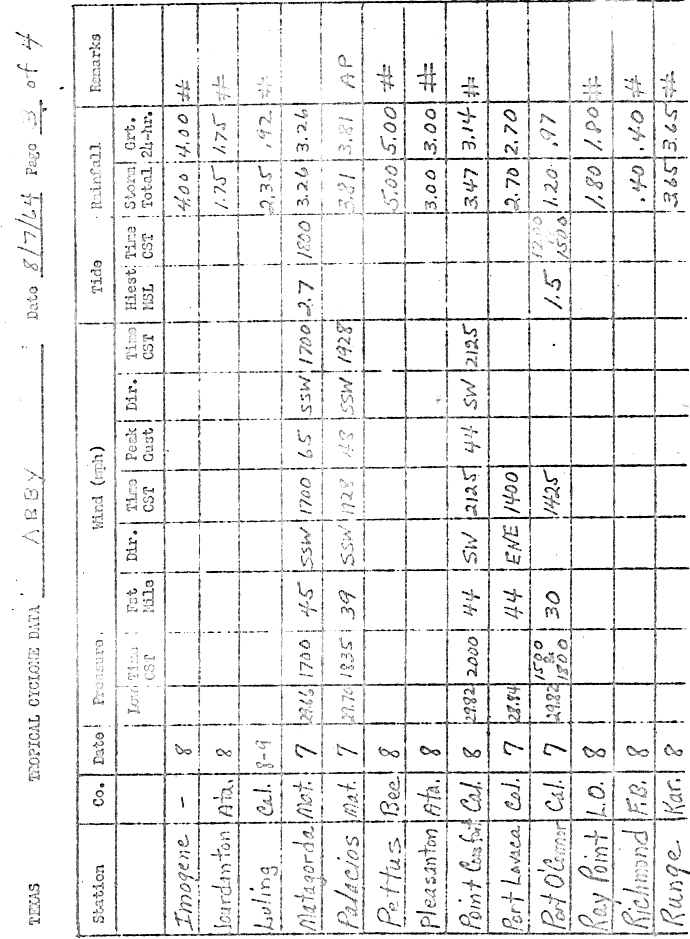 TEXAS TROPICAL CYCLONE DATA ABBY Date 8/7/64 Page 3 of 4
Station Co. Date Pressure Wind (mph) Tide Rainfall Remarks
Low Time CST Fst Mile Dir. Time CST Peak Gust Dir. Time CST Hiest MSL Time CST Storm Total Grt. 24-hr.
Imogene - 8 4.00 4.00 #
Jourdanton Ata. 8 1.75 1.75 #
Luling Cal. 8-9 2.35 .92 #
Matagorda Mat. 7 29.66 1700 45 SSW 1700 65 SSW 1700 2.7 1800 3.26 3.26
Palacios Mat. 7 29.70 1835 39 SSW 1928 48 SSW 1928 3.81 3.81 AP
Pettus Bee 8 5.00 5.00 #
Pleasanton Ata. 8 3.00 3.00 #
Point Comfort Cal. 8 29.82 2000 44 SW 2125 44 SW 2125 3.47 3.14 #
Port Lavaca Cal. 7 28.84 44 ENE 1400 2.70 2.70
Port O'Connor Cal. 7 29.82 1500 to 1800 30 1425 1.5 1200 to 1500 1.20 .97
Ray Point L.O. 8 1.80 1.80 #
Richmond F.B. 8 .40 .40 #
Runge Kar. 8 3.65 3.65 #